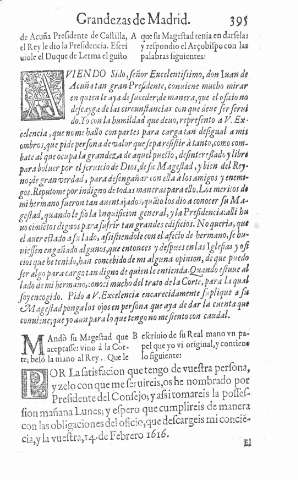 Grandezas de Madrid. 395
de Acuña Presidente de Castilla,
el Rey le dio la Presidencia. Escri
uiole el Duque de Lerma el gusto
A
que su Magestad tenia en darsela
y respondio el Arçobispo con las
palabras siguientes:
AVIENDO Sido, señor Excelentissimo, don Iuan de
Acuña tan gran Presidente, conuiene mucho mirar
en quien le aya de suceder, de manera, que el oficio no
descayga de las circunstancias con que deue ser serui
do. Yo con la humildad que deuo, represento a V. Ex-
celencia, que no me hallo con partes para carga tan desigual a mis
ombros, que pide persona de valor que sepa resistir a tanto, como com-
bate al que ocupa la grandeza de aquel puesto, desinteresado y libre
para boluer por el seruicio de Dios, de su Magestad, y bien del Rey-
no; de gran verdad, para desengañar con ella a los amigos y enemi-
gos. Reputome por indigno de todas maneras para ello. Los meritos de
mi hermano fueron tan auentajados, quãto los dio a conocer su Ma-
gestad, quando le fio la Inquisicion general, y la Presidencia: alli hu
uo cimientos dignos para sufrir tan grandes edificios. No querria, que
el auer estado a su lado, assistiendole con el afecto de hermano, se hu-
uiessen engañado algunos, que entonces y despues en las Iglesias y ofi
cios que he tenido, han concebido de mi alguna opinion, de que puedo
ser algo para cargo tan digno de quien le entienda. Quando estuue al
lado de mi hermano, conoci mucho del trato de la Corte, para la qual
soy encogido. Pido a V. Excelencia encarecidamente suplique a su
Magestad ponga los ojos en persona que aya de dar la cuenta que
conuiene, que yo aun para lo que tengo no me siento con caudal.
Mandò su Magestad que
acceptasse: vino à la Cor-
te, besò la mano al Rey. Que le
B
escriuio de su Real mano vn pa-
pel que yo vi original, y contiene
lo siguiente:
POR La satisfacion que tengo de vuestra persona,
y zelo con que me seruireis, os he nombrado por
Presidente del Consejo, y assi tomareis la posses-
sion mañana Lunes: y espero que cumplireis de manera
con las obligaciones del oficio, que descargeis mi concie-
cia, y la vuestra, 14. de Febrero 1616.
El